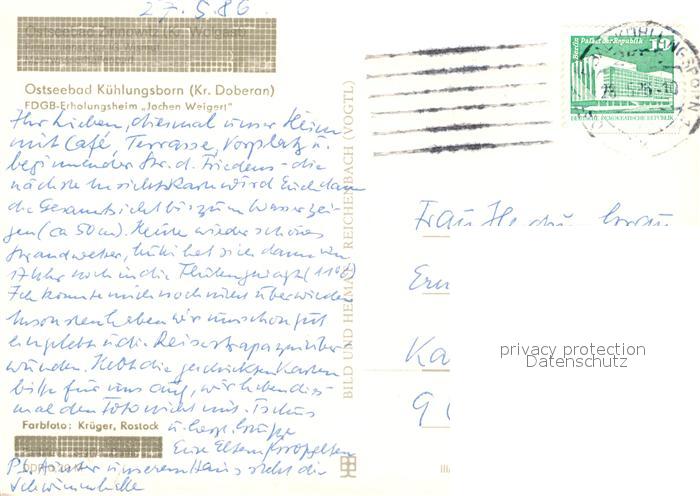 27.5.86
Ostseebad Zinnowitz (Kr. Wolgast)
Ostseebad Kühlungsborn (Kr. Doberan)
FDGB-Erholungsheim „Jochen Weigert"
Ihr Lieben, diesmal unser Heim
mit Café, Terrasse, Vorplatz u.
beginnender Str. d. Friedens - die
nächste Ansichtskarte wird Euch dann
die Gesamtsicht bis zum Wasser zei-
gen (ca 50m). Heute wieder schönes
Strandwetter, hat sich dann um
17 Uhr noch in die Fluten gewagt (11°)
Ich konnte mich noch nicht überwinden
Ansonsten haben wir uns schon gut
eingelebt u. die Reisestrapazen über-
wunden. Hebt die geschickten Karten
bitte für uns auf, wir haben dies-
mal den Foto nicht mit. Tschüs
u. herzl. Grüße
Eure Eltern
PS. hinter unserem Haus steht die
Schwimmhalle
Farbfoto: Krüger, Rostock
BILD UND HEIMAT REICHENBACH (VOGTL)
Berlin, Palast der Republik
10
DEUTSCHE DEMOKRATISCHE REPUBLIK
Frau
privacy protection
Datenschutz